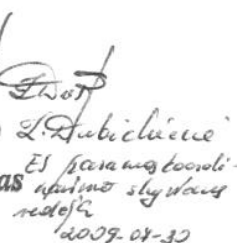 L. Dubickienė
ES paramos koordi-
as navimo skyriaus
vedėja
2009-04-30